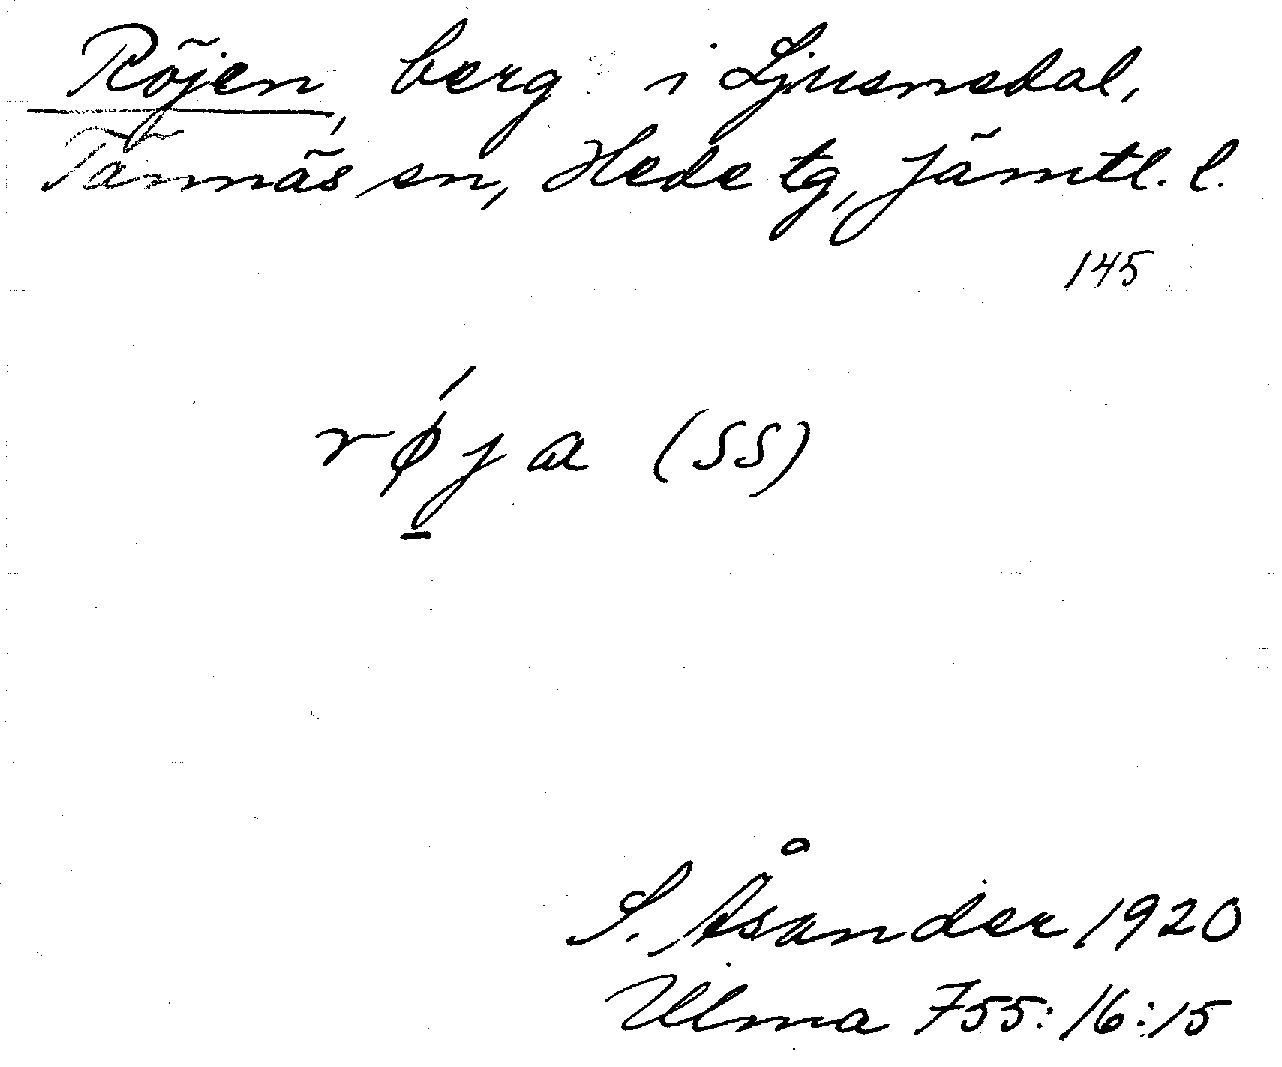 Röjen, berg i Ljusnedal,
Tännäs sn, Hede tg, Jämtl. l.
145
rǿja (SS)
S. Åsander 1920
Ulma 755:16:15